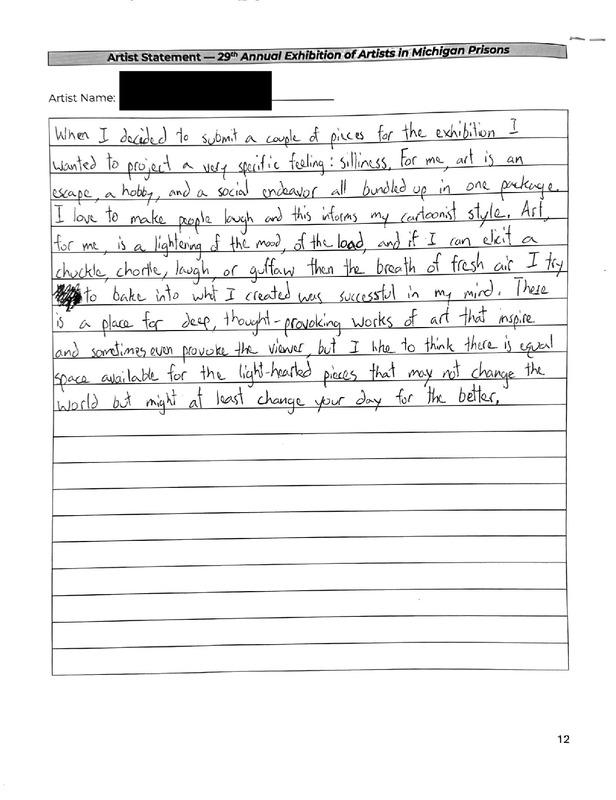 Artist Statement — 29th Annual Exhibition of Artists in Michigan Prisons
Artist Name:
When I decided to submit a couple of pieces for the exhibition I
wanted to project a very specific feeling: silliness. For me, art is an
escape, a hobby, and a social endeavor all bundled up in one package.
I love to make people laugh and this informs my cartoonist style. Art,
for me, is a lightering of the mood, of the load, and if I can elicit a
chuckle, chortle, laugh, or guffaw then the breath of fresh air I try
to bake into what I created was successful in my mind. There
is a place for deep, thought-provoking works of art that inspire
and sometimes even provoke the viewer, but I like to think there is equal
space available for the light-hearted pieces that may not change the
world but might at least change your day for the better.
12